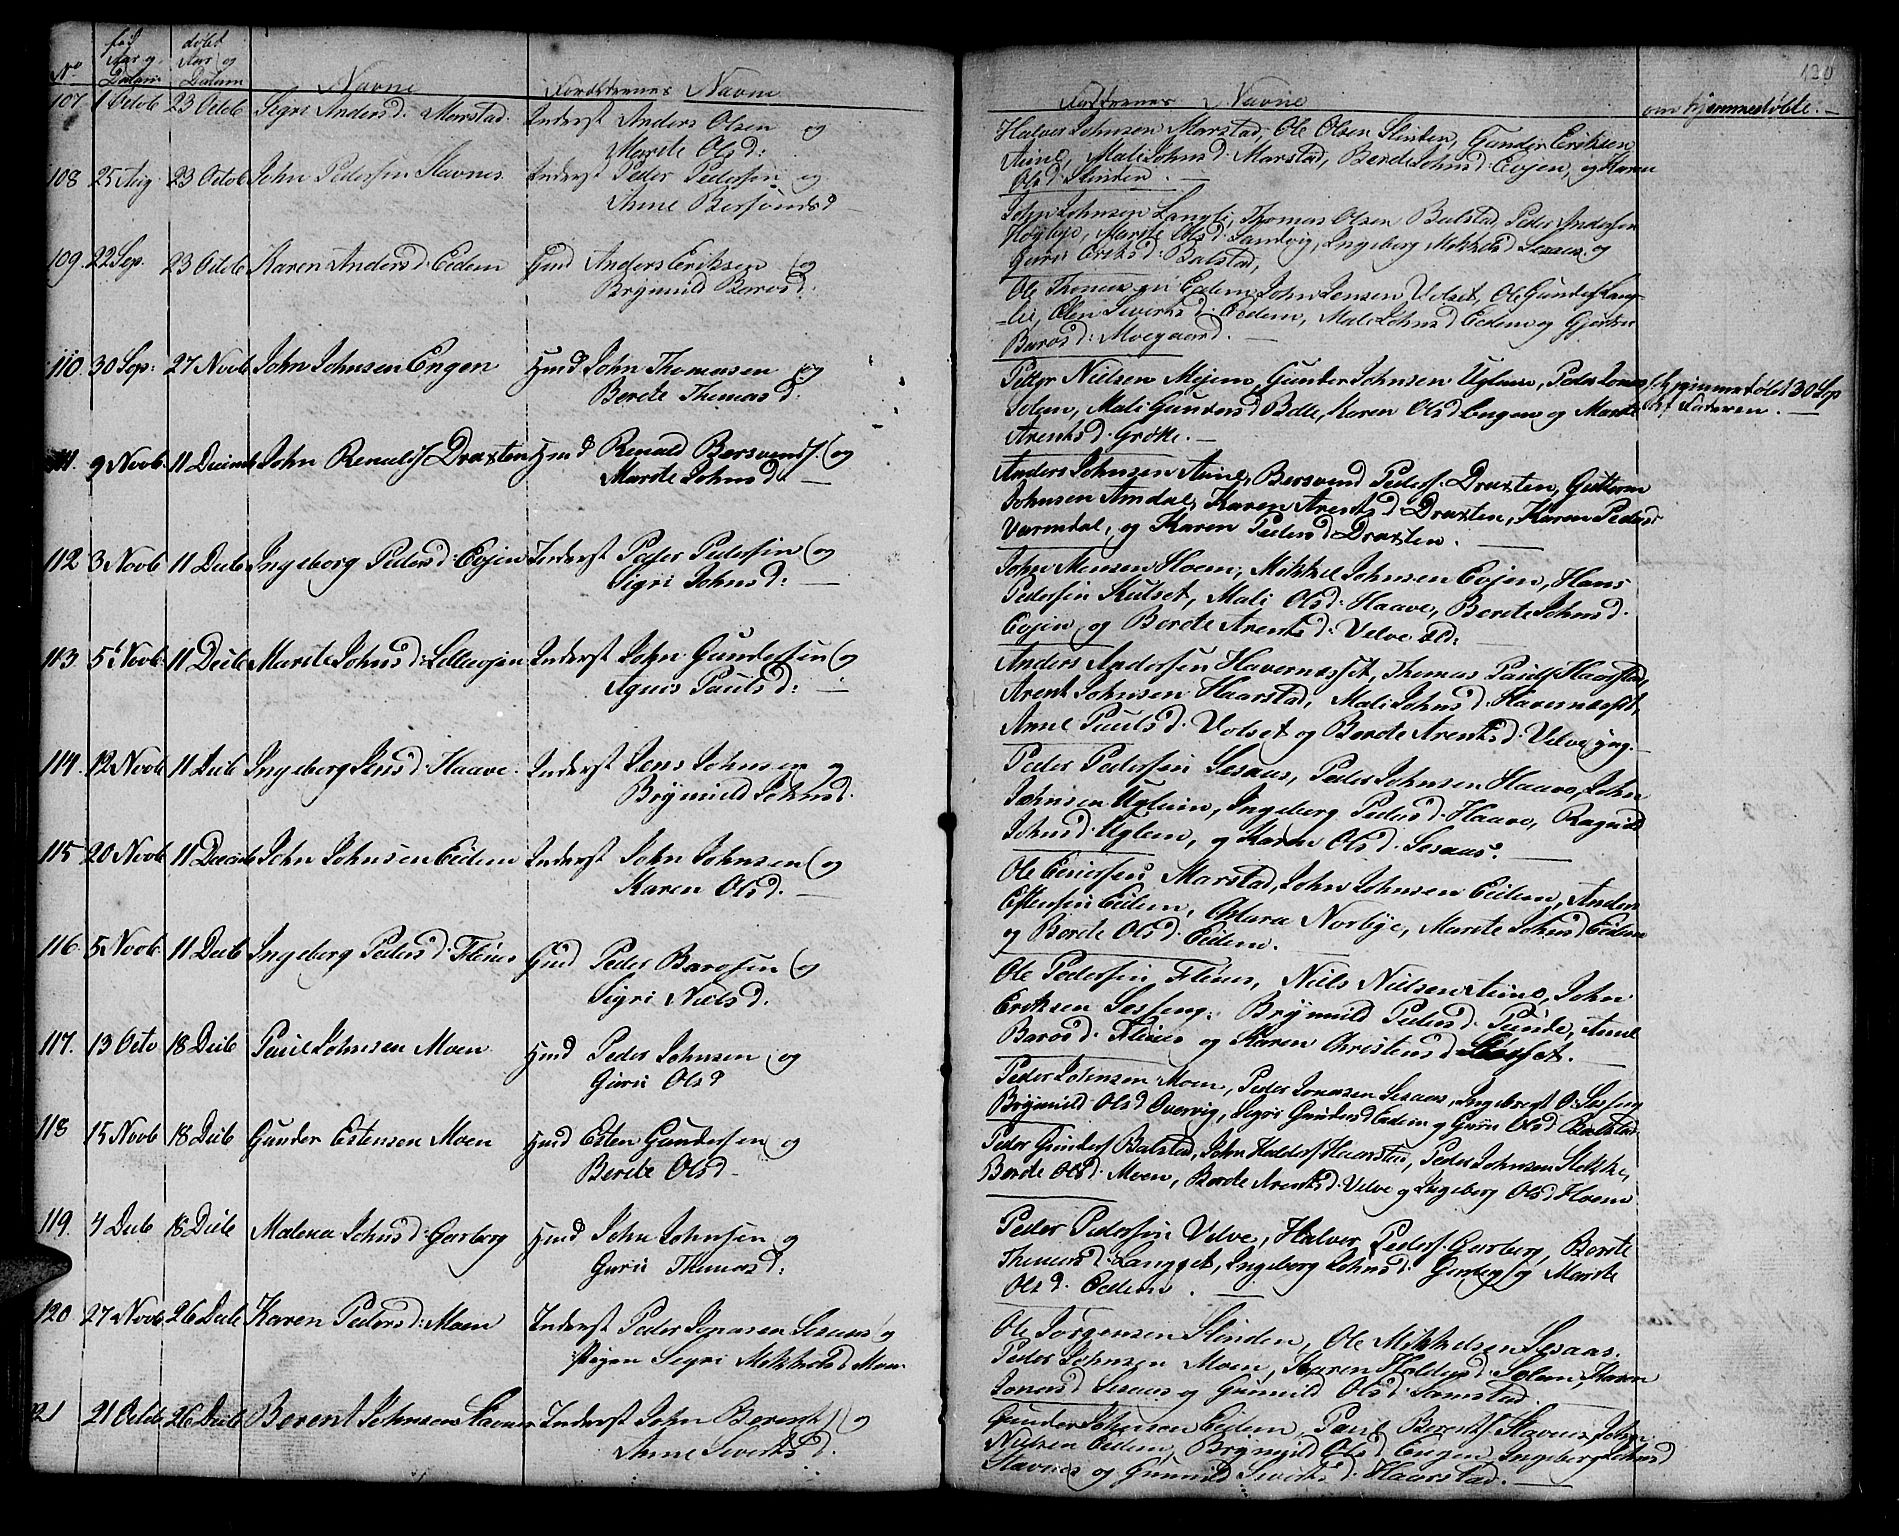 No
fød
Aar og
Datum
døbt
Aar og
Datum
Navne
Forældrenes Navne
107 1 Octob 23 Octob Sigri Andersd: Marstad. Inderst Anders Olsen og
Marite Olsd:
108 25 Aug. 23 Octob John Pedersen Slavnes. Inderst Peder Pedersen og
Anne Bersvendsd
109. 22 Sep. 23 Octob Karen Andersd: Eidem Hmd Anders Eriksen og
Brynild Barosd:
110. 30 Sep: 27 Novb John Johnsen Engen Hmd John Thomasen og
Berete Thomasd.
111. 9 Novb. 11 Decmb John Renaldsf Draxten Hmd Renald Bersvendsf. og
Marite Johnsd.
112 3 Novb 11 Decb Ingeborg Pedersd: Evjen Inderst Peder Pedersen og
Sigri Johnsd:
113 5t Novb: 11 Decb Marite Johnsd: Lilleevjen Inderst John Gundersen og
Agnis Paulsd:
114. 12 Novb 11 Decb Ingeborg Jensd: Haave. Inderst Jens Johnsen og
Brynild Johnsd.
115 20 Novb 11 Decmb John Johnsen Eidem Inderst John Johnsen og
Karen Olsd.
116 5 Novb. 11 Decb Ingeborg Pedersd: Flenes Hmd Peder Barosen og
Sigri Nielsd.
117. 13 Octo 18 Decb Paul Johnsen Moen Hmd Peder Johnsen og
Guru Olsd
118 15 Novb 18 Decb Gunder Estensen Moen Hmd Esten Gundersen og
Berete Olsd
119. 4 Decb 18 Decb Malena Johnsd: Garberg Hmd John Johnsen og
Guru Thomasd:
120 27 Novb 26 Decb Karen Pedersd: Moen Inderst Peder Jonasen Sesaas og
Pigen Sigri Mikkelsd Moen
121 21 Octob 26 Decb Berent Johnsen Slavnes Inderst John Berentsf og
Anne Sivertsd.
120
Faddrenes Navne
om hjemmedøbte.
Halvor Johnsen Marstad, Ole Olsen Slinden, Gunder Eriksen
Aune, Mali Johnsd: Marstad, Berete Johnsd: Evjen, og Karen
Olsd Slinden.
John Johnsen Langli, Thomas Olsen Balstad, Peder Andersen
Høyby, Marite Olsd: Sandvig, Ingeborg Mikkelsd Sesaas og
Guru Eriksd: Balstad,
Ole Thomasen Eidem, John Jensen Volset, Ole Gundersf Lang-
-li, Elen Sivertsd: Eidem, Mali Johnsd Eidem og Gjertru
Barosd: Moegaard.
Petter Nielsen Mojem, Gunder Johnsen Uglem, Peder Jonas
Solem, Mali Gundersd Bolle, Karen Olsd Engen og Marite
Arentsd: Grøtte.
hjemmedøbt 30 Sep
af Faderen.
Anders Johnsen Aune, Bersvend Pedersf: Draxten, Guttorm
Johnsen Amdal, Karen Arentsd Draxten, Karen Pedersd
Varmdal, og Karen Pedersd Draxten.
John Monsen Hoem, Mikkel Johnsen Evjen, Hans
Pedersen Kulset, Mali Olsd: Haave, Berete Johnsd.
Evjen og Berete Arentsd: Velve æld:
Anders Andersen Havernesset, Thomas Paulsf Haarstad,
Arent Johnsen Haarstad, Mali Johnsd: Havernesset,
Anne Paulsd: Volset og Berete Arentsd: Velve yng.
Peder Pedersen Sesaas, Peder Johnsen Haave, John
Johnsen Uglem, Ingeborg Pedersd: Haave, Ragnild
Johnsd: Uglem, og Karen Olsd: Sesaas.
Ole Einersen Marstad, John Johnsen Eidem, Anders
Estensen Eidem, Norbye, Marite Johnsd Eidem
og Berete Olsd: Eidem.
Ole Pedersen Flenes, Niels Nielsen Aune, John
Eriksen Sesseng. Brynild Pedersd. Punde, Anne
Barosd: Flenes og Karen Christensd
Peder Johnsen Moen, Peder Jonasen Sesaas, Ingebregt O: Sesseng
Brynild Olsd Overvig, Sigri Gundersd Eidem og Guru Olsd Balstad
Peder Gundersf Balstad, John Haldorsf Haarstad, Peder Johnsen Stokke,
Berete Olsd: Moen, Berete Arentsd: Velve og Ingeborg Olsd Hoem
Peder Pedersen Velve, Halvor Pedersf: Garberg, Berete
Thomasd: Langset, Ingeborg Johnsd: Garberg og Marite
Olsd: Eidem.
Ole Jørgensen Slinden, Ole Mikkelsen Sesaas.
Peder Johnsen Moen, Karen Haldorsd: Solem, Karen
Jonasd Sesaas og Gunild Olsd: Samstad.
Gunder Johnsen Eidem, Paul Berentsf: Slavnes, John
Nielsen Eidem, Brynild Olsd Engen, Ingeborg Johnsd
Slavnes og Gunild Sivertsd: Haarstad.